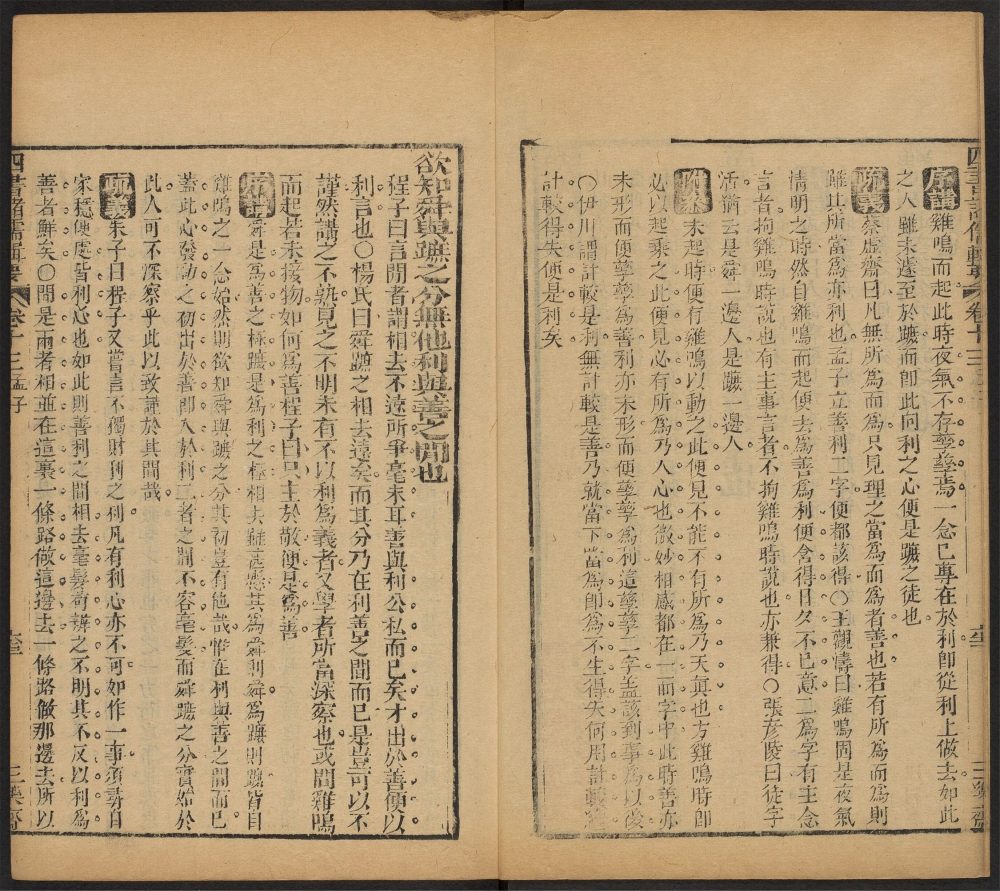 雞鳴而起此時夜氣不存孳孳焉一念已專在於利卽從利上做去如此
之人雖未遽至於蹠而卽此向利之心便是蹠之徒也
疏義蔡虛齋曰凡無所爲而爲只見理之當爲而爲者善也若有所爲而爲則
雖比所當爲亦利也孟子立善利二字便都該得〇王觀濤曰雞鳴固是夜氣
清明之時然自雞鳴而起便去爲善爲利便會得日夕不已意二爲字有主念
言者拘雞鳴時說也有主事言者不拘雞鳴時說也亦兼得〇張彥陵曰徒字
活猶云是舜一邊人是蹠一邊人
附叅未起時便有雞鳴以動之此便見不能不有所爲乃天眞也方雞鳴時卽
必以起乘之此便見必有所爲乃人心也微妙相感都在二而字中此時善亦
未形而便孳孳爲善利亦未形而便孳孳爲利這孳孳二字盖該到事爲以後
〇伊川謂計較是利無計較是善乃就當下當爲卽爲不生得失何用計較
計較得失便是利矣
欲知舜與蹠之分無他利與善之閒也
程子曰言閒者謂相去不遠所爭毫末耳善與利公私而已矣才出於善便以
利言也〇楊氏曰舜蹠之相去遠矣而其分乃在利善之閒而已是豈可以不
謹然講之不熟見之不明未有不以利爲義者又學者所當深察也或問雞鳴
而起若未接物如何爲善程子曰只主於敬便是爲善
舜是爲善之極蹠是爲利之極相去雖遠然其爲舜則舜爲蹠則蹠皆自
雞鳴之一念始然則欲知舜與蹠之分其初豈有他哉惟在利與善之閒而已
蓋此心發動之初出於善卽入於利二者之閒不容毫髮而舜蹠之分實始於
此人可不深察乎此以致謹於其閒哉
疏義朱子曰程子又嘗言不獨財利之利凡有利心亦不可如作一事須尋自
家穩便處皆利心也如此則善利之間相去毫髮苟辨之不明其不反以利爲
善者鮮矣〇問是兩者相並在這裏一條路做這邊去一條路做那邊去所以
四書諸儒輯要 卷十三孟子 三樂齋